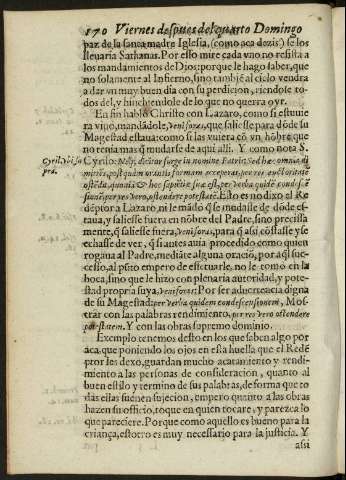 170 Viernes despues del quarto Domingo
paz de la santa madre Iglesia, (como aca dezis) se los
lleuaria Sathanas. Por esso mire cada vno no resista a
los mandamientos de Dios: porque le hago saber, que
no solamente al Infierno, sino tambiē al cielo vendra
a dar vn muy buen dia con su perdicion, riendose to-
dos del, y hinchiendole de lo que no querra oyr.
En fin hablò Christo con Lazaro, como si estuuie
ra viuo, mandādole, veni foras, que saliesse para dōde su
Magestad estaua: como si las vuiera cō vn hōbre, que
no tenia mas q̄ mudarse de aqui alli. Y como nota S.
Cyril. vbi su
pra.
Cyrilo:
Esto es no dixo el Re
dēptor a Lazaro, ni le mādo q̄ se mudasse de dōde es-
taua, y saliesse fuera en nōbre del Padre, sino precissa
mente, q̄ saliesse fuera, veni foras, para q̄ assi cōstasse y se
echasse de ver, q̄ si antes auia procedido como quien
rogaua al Padre, mediāte alguna oracion, por a q̄l suc-
cesso, al pūto empero de efectuarle, no le tomò en la
boca, sino que le hizo con plenaria autoridad, y potes-
tad propria suya, veni foras: Por ser aduertencia digna
de su Magestad: per verba quidem condescensionem, Mos-
trar con las palabras rendimiento, per res vero ostendere
potestatem. Y con las obras supremo dominio.
Exemplo tenemos desto en los que saben algo por
aca, que poniendo los ojos en essa huella que el Redē
ptor les dexo, guardan mucho acatamiento y rendi-
miento a las personas de consideracion, quanto al
buen estilo y termino de sus palabras, de forma que to
das ellas suenen sujecion, empero quanto a las obras
hazen su officio, toque en quien tocare, y parezca lo
que pareciere. Porque como aquello es bueno para la
criança, estotro es muy necessario para la justicia. Y
assi